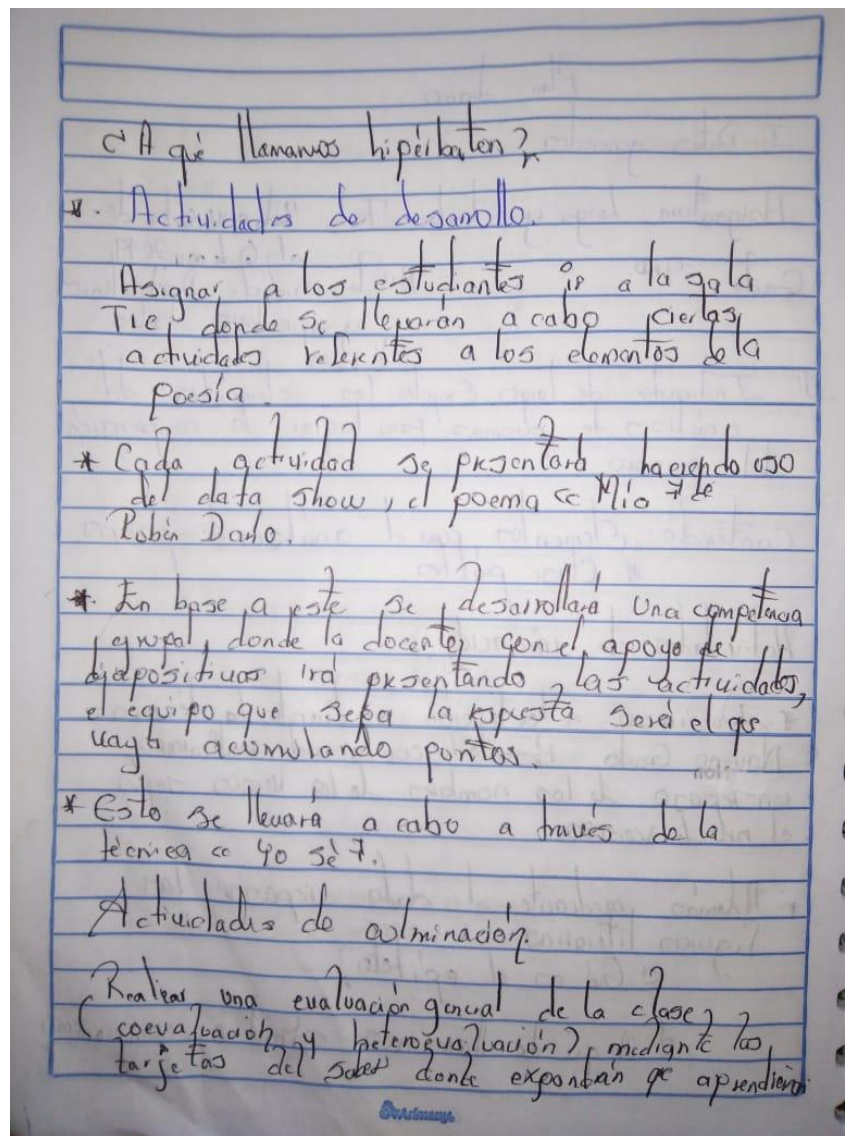 ¿A qué llamamos hipérbaton?
*. Actividades de desarrollo.
Asignar a los estudiantes ir a la sala
TIC, donde se llevarán a cabo ciertas
actividades referentes a los elementos de la
poesía.
* Cada actividad se presentará haciendo uso
del data show, el poema "Mío" de
Rubén Darío.
*. En base a este se desarrollará una competencia
grupal, donde la docente, con el apoyo de
diapositivas irá presentando las actividades,
el equipo que sepa la respuesta será el que
vaya acumulando puntos.
* Esto se llevará a cabo a través de la
técnica "Yo sé".
Actividades de culminación.
Realizar una evaluación general de la clase
(coevaluación y heteroevaluación), mediante las
tarjetas del saber donde expondrán que aprendieron